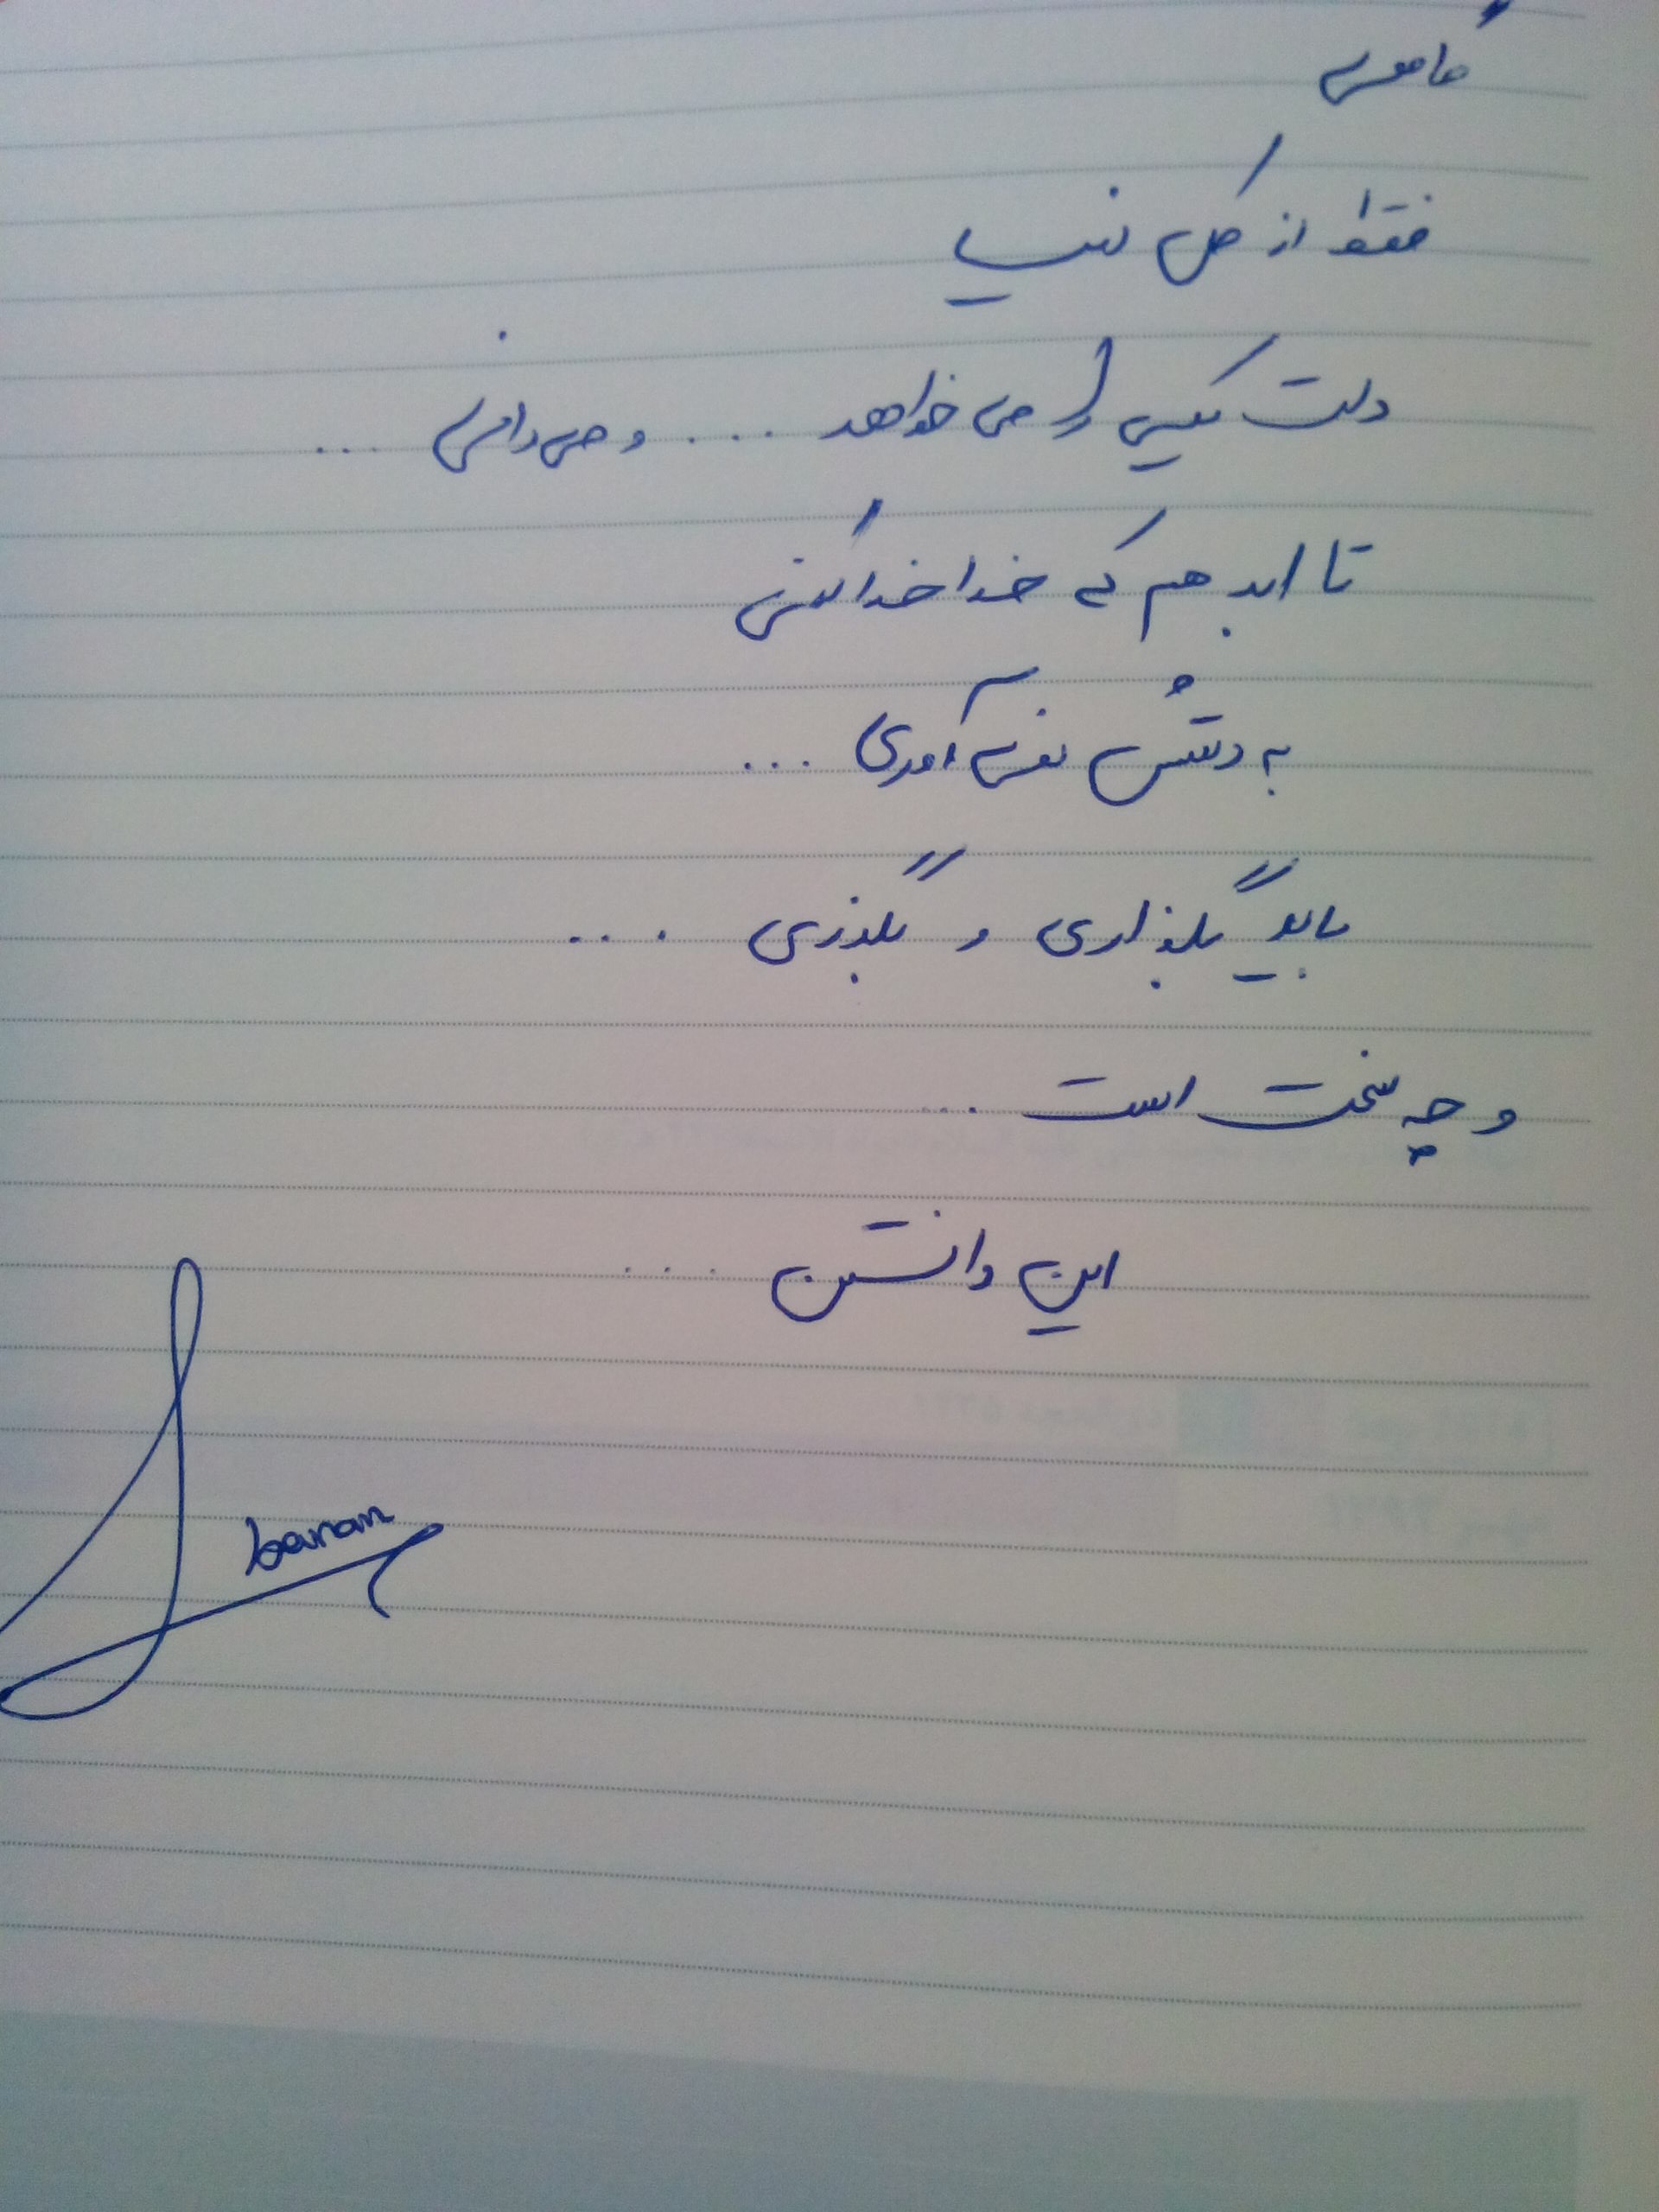 گاهی
فقط از کل دنیا
دلت یکی را می خواهد .... و می دانی ...
تا ابد هم که خدا خدا کنی
به دستش نمی آوری ...
باید بگذاری و بگذری ...
و چه سخت است ...
این دانستن ....
baran